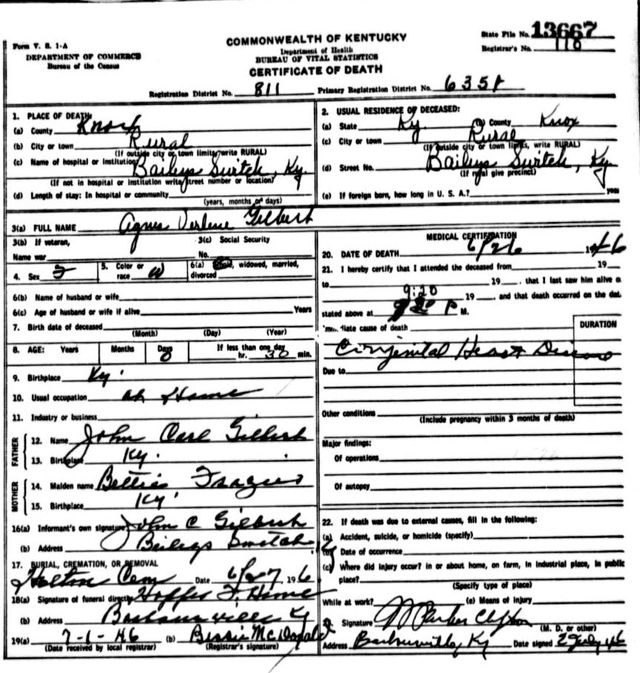 Form V. S. 1-A
DEPARTMENT OF COMMERCE
Bureau of the Census
COMMONWEALTH OF KENTUCKY
Department of Health
BUREAU OF VITAL STATISTICS
CERTIFICATE OF DEATH
State File No. 13667
Registrar's No. 118
Registration District No. 811 Primary Registration District No. 6351
1. PLACE OF DEATH
(a) County Knox
(b) City or town Rural
(If outside city or town limits, write RURAL)
(c) Name of hospital or institution Baileys Switch, Ky.
(If not in hospital or institution write street number or location)
(d) Length of stay: In hospital or community
(years, months or days)
2. USUAL RESIDENCE OF DECEASED:
(a) State Ky. (b) County Knox
(c) City or town Rural
(If outside city or town limits, write RURAL)
(d) Street No. Baileys Switch, Ky
(If rural give precinct)
(e) If foreign born, how long in U. S. A.? years
3(a) FULL NAME Agnes Verlene Gilbert
3(b) If veteran,
Name war
3(c) Social Security
No.
4. Sex F 5. Color or race W 6(a) widowed, married,
divorced
6(b) Name of husband or wife
6(c) Age of husband or wife if alive Years
7. Birth date of deceased
(Month) (Day) (Year)
8. AGE: Years Months Days If less than one day
0 hr. 30 min.
9. Birthplace Ky.
10. Usual occupation at Home
11. Industry or business
FATHER
12. Name John Carl Gilbert
13. Birthplace Ky.
MOTHER
14. Maiden name Bettie Frazier
15. Birthplace Ky.
16(a) Informant's own signature John C Gilbert
(b) Address Baileys Switch
17. BURIAL, CREMATION, OR REMOVAL
Cem Date 6/27, 1946
18(a) Signature of funeral director Home
(b) Address Barbourville Ky
19(a) 7-1-46 (b) Bessie McDonald
(Date received by local registrar) (Registrar's signature)
MEDICAL CERTIFICATION
20. DATE OF DEATH 6/26 1946
21. I hereby certify that I attended the deceased from 19
to 19 , that I last saw him alive o
9:20 19 , and that death occurred on the dat
stated above at P M.
Immediate cause of death
DURATION
Congenital Heart Disease
Due to
Other conditions
(Include pregnancy within 3 months of death)
Major findings:
Of operations
Of autopsy
22. If death was due to external causes, fill in the following:
(a) Accident, suicide, or homicide (specify)
(b) Date of occurrence
(c) Where did injury occur? in or about home, on farm, in industrial place, in public
place?
(Specify type of place)
While at work? (e) Means of injury
Signature Parker Clifton
(M. D. or other)
Address Barbourville, Ky Date signed 2 July 46